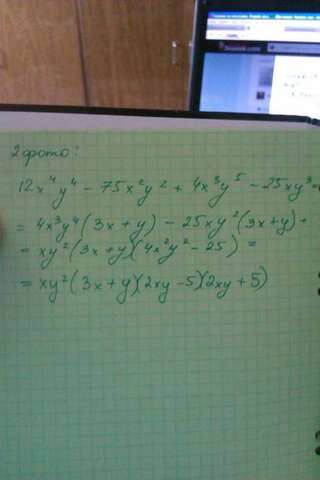 2 фото:
12x⁴y⁴ - 75x²y² + 4x³y⁵ - 25xy³ =
= 4x³y⁴(3x + y) - 25xy²(3x + y) =
= xy²(3x + y)(4x²y² - 25) =
= xy²(3x + y)(2xy - 5)(2xy + 5)